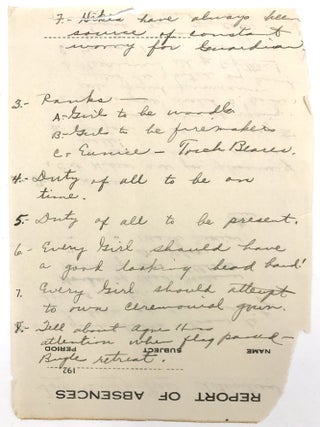 7.- Hikes have always been
source of constant
worry for Guardian
3.- Ranks —
A- Girls to be woodg
B- Girls to be firemakers
C- Eunice — Torch Bearer.
4.- Duty of all to be on
time.
5.- Duty of all to be present.
6- Every Girl should have
a good looking head band!
7. Every Girl should attempt
to own ceremonial gown.
8.- Tell about
attention when flag passed —
Bugle retreat.
REPORT OF ABSENCES
192
NAME
SUBJECT
PERIOD